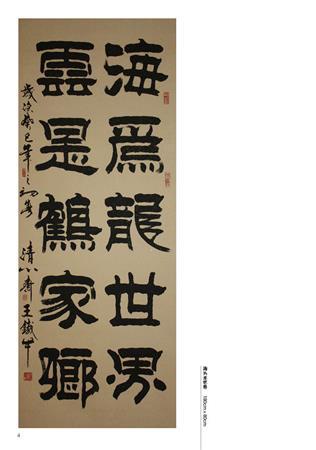 海為龍世界
雲是鶴家鄉
歲次癸巳年之初春 清心齋 王鐵牛
海為龍世界
180cm×80cm
4